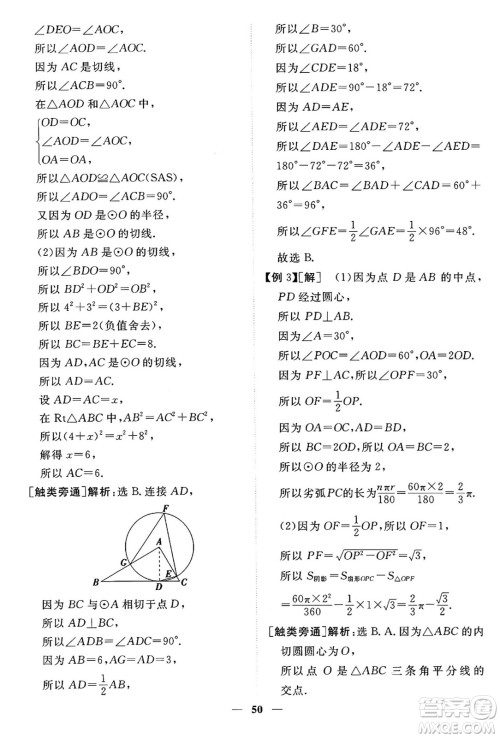 ∠DEO=∠EDO,
所以∠AOD=∠AOC.
因为 AC 是切线,
所以∠ACB=90°.
在△AOD 和△AOC 中,
{OD=OC,
∠AOD=∠AOC,
OA=OA,
所以△AOD≌△AOC(SAS)
所以∠ADO=∠ACB=90°.
又因为 OD 是⊙O 的半径,
所以 AB 是⊙O 的切线.
(2)因为 AB 是⊙O 的切线,
所以∠BDO=90°,
所以 BD²+OD²=OB²,
所以 4²+3²=(3+BE)²,
所以 BE=2(负值舍去),
所以 BC=BE+EC=8.
因为 AD,AC 是⊙O 的切线,
所以 AD=AC.
设 AD=AC=x,
在 Rt△ABC 中,AB²=AC²+BC²,
所以(4+x)²=x²+8²,
解得 x=6,
所以 AC=6.
[触类旁通]解析:选 B.连接 AD,
F
A
G
E
B
D
C
因为 BC 与⊙A 相切于点 D,
所以 AD⊥BC,
所以∠ADB=∠ADC=90°.
因为 AB=8,AG=AD=4,
所以 AD=1/2AB,
所以∠B=30°,
所以∠GAD=60°.
因为∠CDE=18°,
所以∠ADE=90°-18°=72°.
因为 AD=AE,
所以∠AED=∠ADE=72°,
所以∠DAE=180°-∠ADE-∠AED=180°-72°-72°=36°,
所以∠GAE=∠GAD+∠DAE=60°+36°=96°,
所以∠GFE=1/2∠GAE=1/2×96°=48°.
故选 B.
[例 3][解] (1)因为点 D 是 AB 的中点,
PD 经过圆心,
所以 PD⊥AB.
因为∠A=30°,
所以∠POC=∠AOD=60°.
因为 PF⊥AC,所以∠OPF=30°,
所以 OF=1/2OP.
因为 OA=OC,AD=BD,
所以 BC=2OD,
所以 OA=BC=2,
所以⊙O 的半径为 2,
所以劣弧PC的长=nπr/180=60π×2/180=2/3π.
(2)因为 OF=1/2OP,
所以 OF=1,
所以 PF=√(OP²-OF²)=√3,
所以 S阴影=S扇形OPC-S△OPF
=60π×2²/360-1/2×1×√3=2/3π-√3/2.
[触类旁通]解析:选 B.A.因为△ABC 的内
切圆圆心为 O,
所以点 O 是△ABC 三条角平分线的
交点.
50
答案圈
MXQE.COM